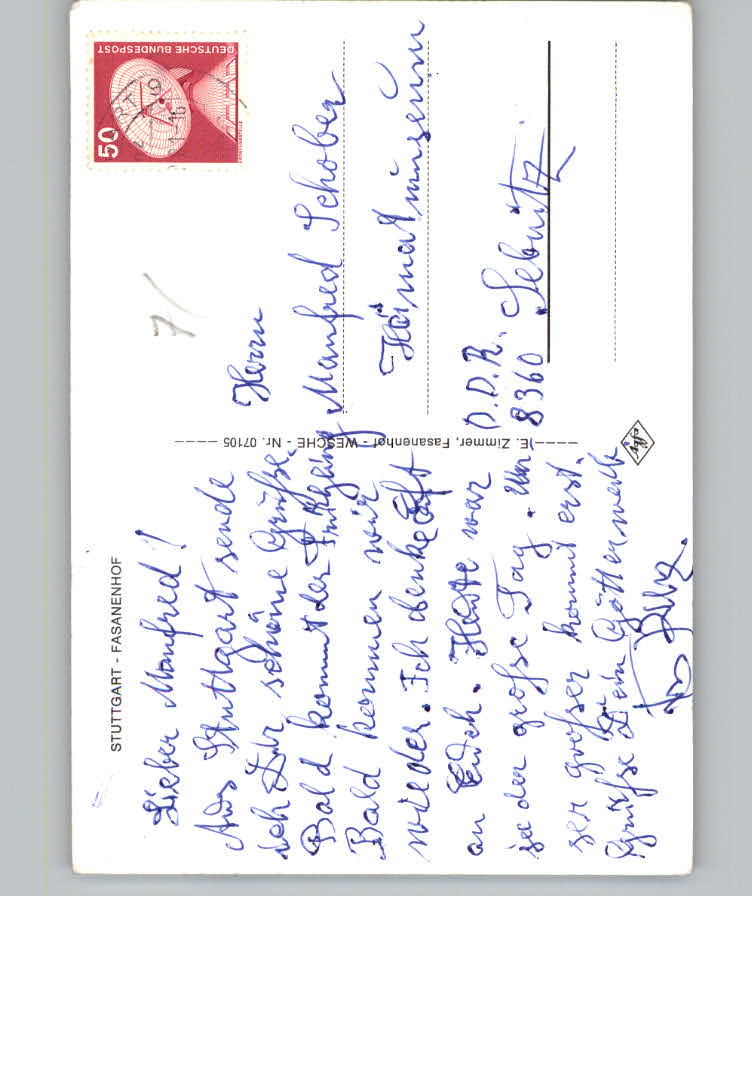 STUTTGART - FASANENHOF
Lieber Manfred!
Aus Stuttgart sende
ich Dir schöne Grüße.
Bald kommt der Frühling
Bald kommen wir
wieder. Ich denke oft
an Euch. Heute war
ja der große Tag. Un-
ser großer kommt erst.
Grüße Dein Götterweib
E. Zimmer, Fasanenhof - WESCHE - Nr. 07105
DEUTSCHE BUNDESPOST
50
7/
Herrn
Manfred Schober
Heimatmuseum
D.D.R.
8360 Sebnitz